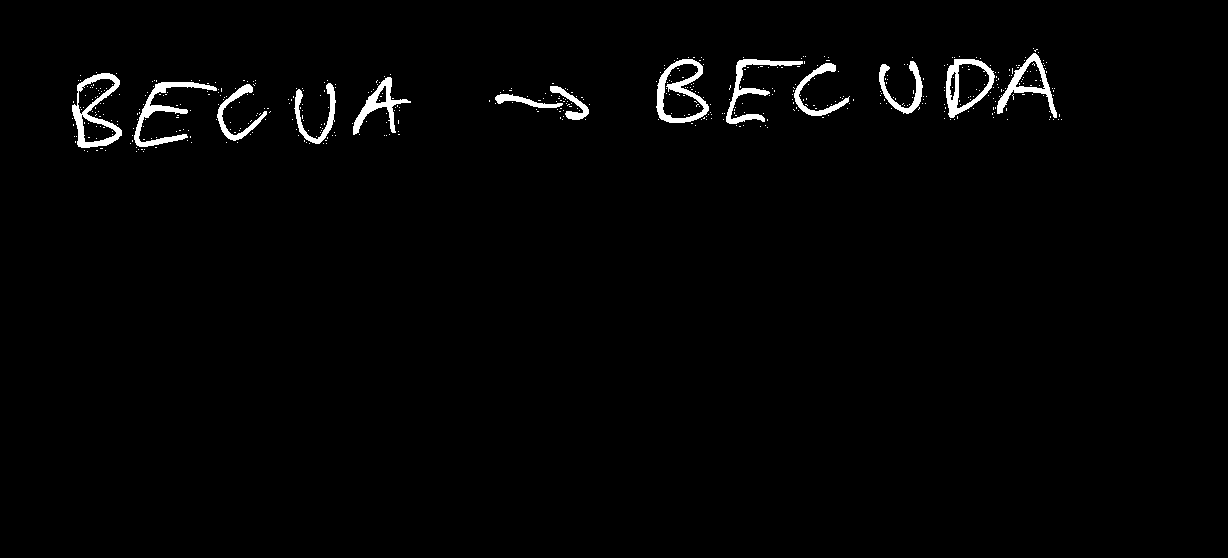 BECUA → BECUDA